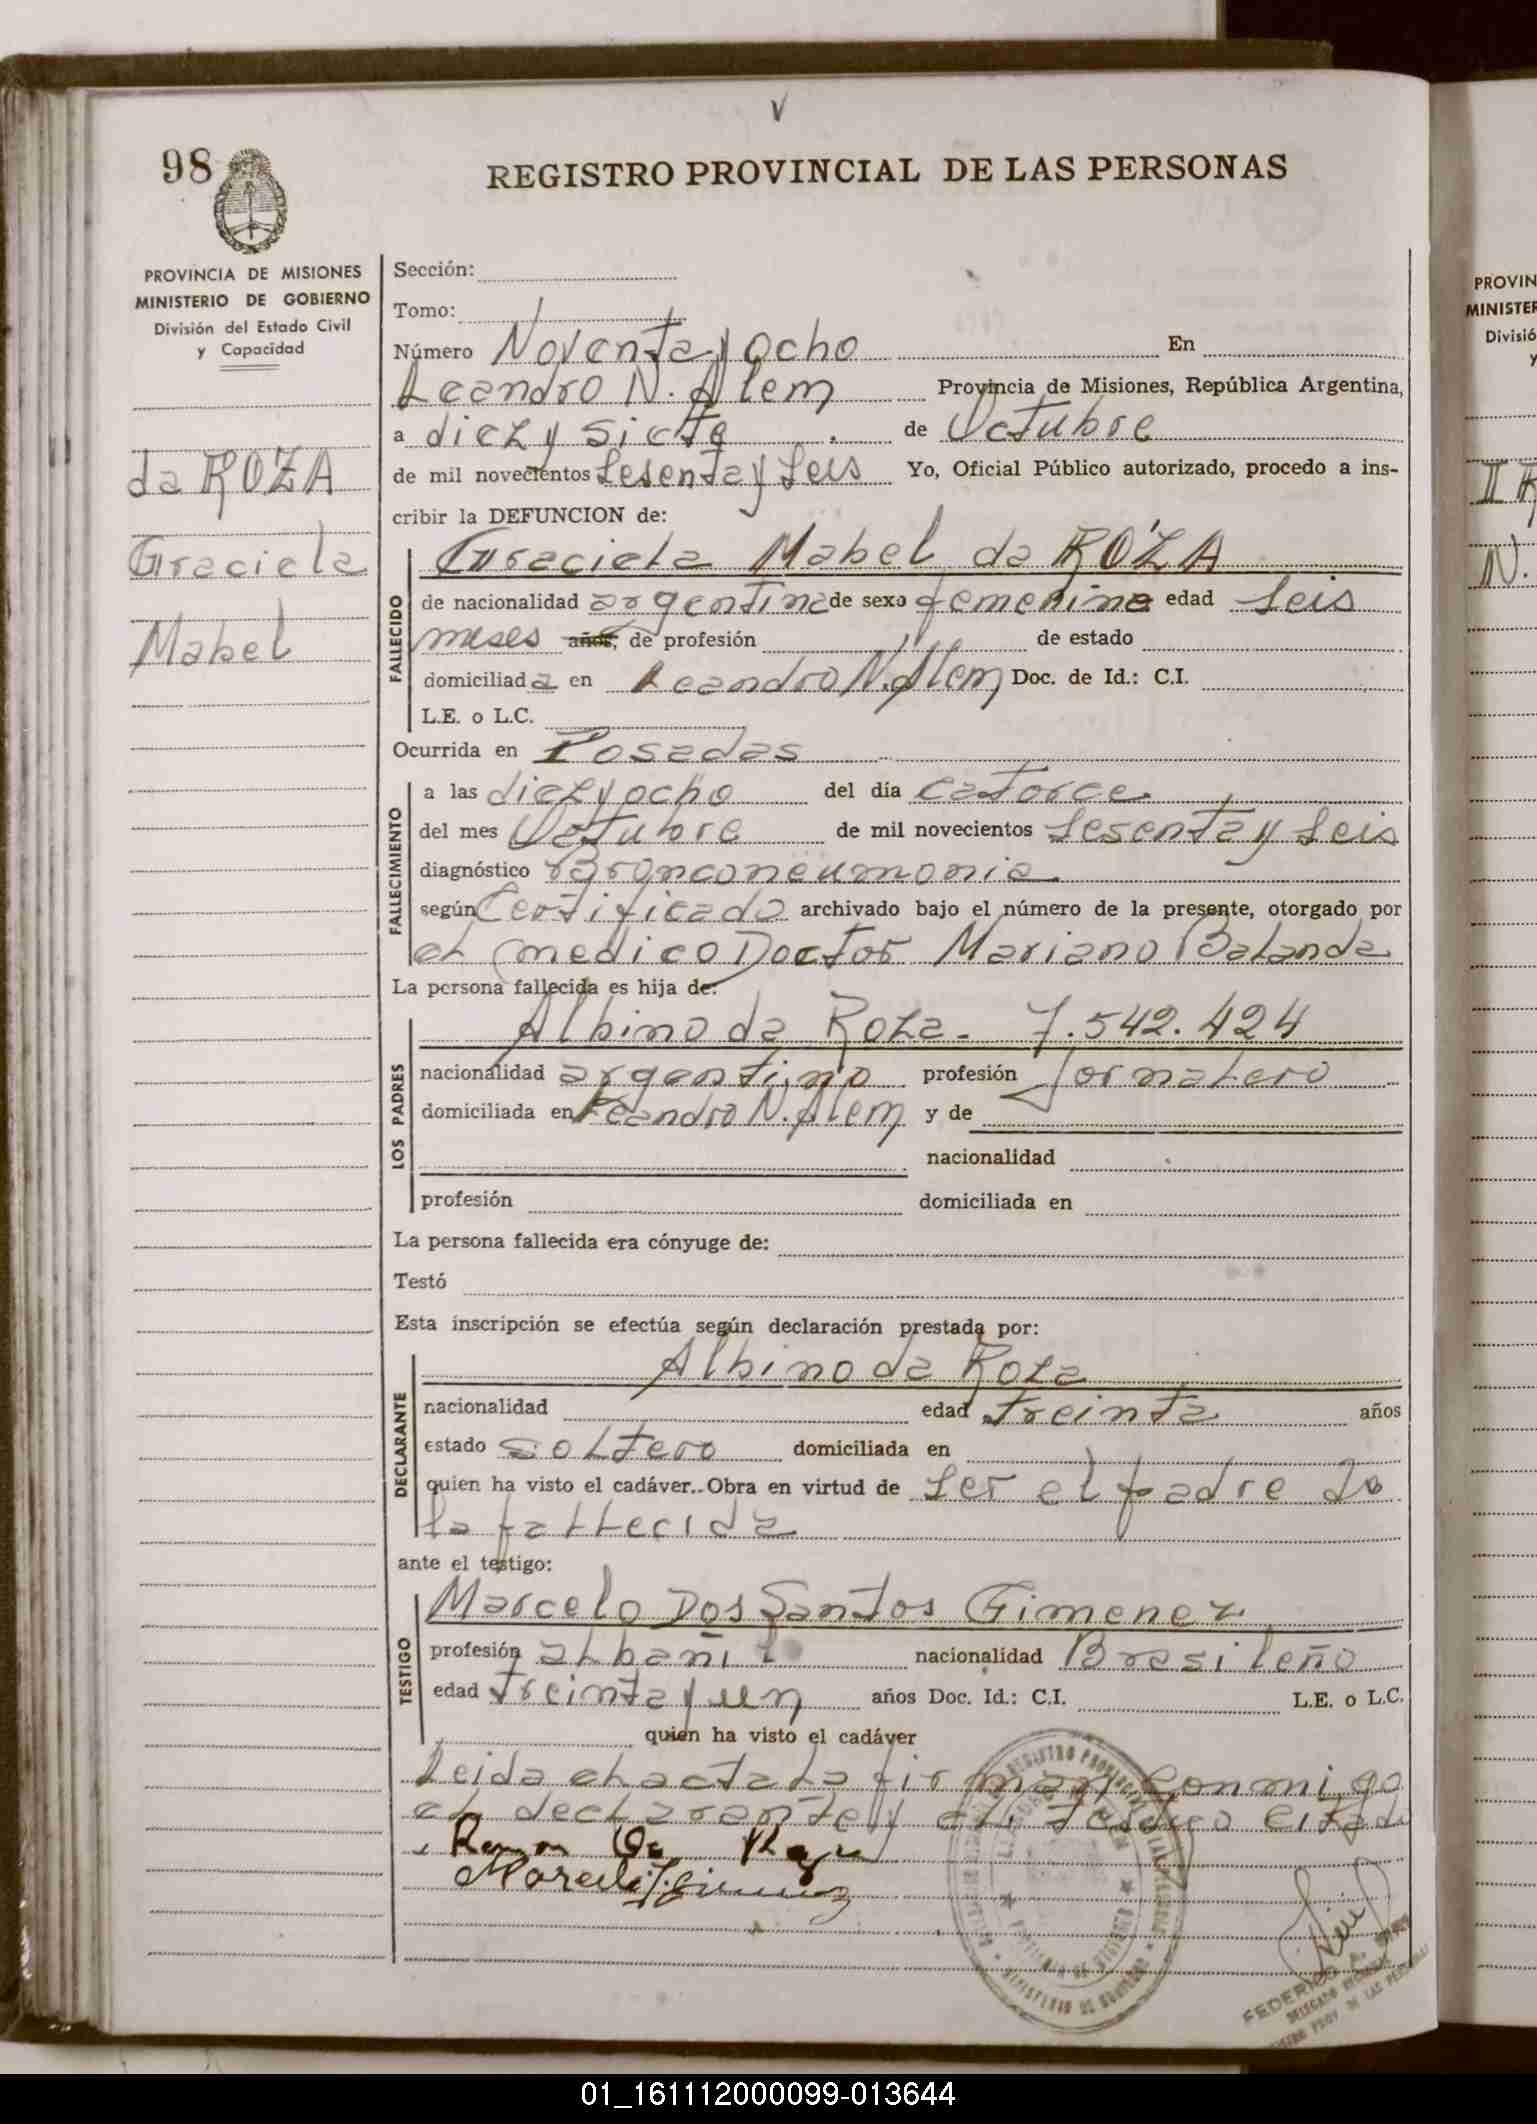 V
98
REGISTRO PROVINCIAL DE LAS PERSONAS
PROVINCIA DE MISIONES
MINISTERIO DE GOBIERNO
División del Estado Civil
y Capacidad
da ROZA
Graciela
Mabel
Sección:
Tomo:
Número Noventa y ocho En
Leandro N. Alem Provincia de Misiones, República Argentina,
a diez y siete de Octubre
de mil novecientos sesenta y seis Yo, Oficial Público autorizado, procedo a ins-
cribir la DEFUNCION de:
FALLECIDO
Graciela Mabel da ROZA
de nacionalidad argentina de sexo femenino edad seis
meses años, de profesión de estado
domiciliada en Leandro N. Alem Doc. de Id.: C.I.
L.E. o L.C.
Ocurrida en Posadas
FALLECIMIENTO
a las diez y ocho del día catorce
del mes Octubre de mil novecientos sesenta y seis
diagnóstico Bronconeumonia
según Certificado archivado bajo el número de la presente, otorgado por
el medico Doctor Mariano Balanda
La persona fallecida es hija de:
LOS PADRES
Albino da Roza - 7.542.424
nacionalidad argentino profesión Jornalero
domiciliada en Leandro N. Alem y de
nacionalidad
profesión domiciliada en
La persona fallecida era cónyuge de:
Testó
Esta inscripción se efectúa según declaración prestada por:
DECLARANTE
Albino da Roza
nacionalidad edad treinta años
estado soltero domiciliada en
quien ha visto el cadáver. Obra en virtud de ser el padre de
la fallecida
ante el testigo:
TESTIGO
Marcelo Dos Santos Gimenez
profesión albañil nacionalidad Brasileño
edad treinta y un años Doc. Id.: C.I. L.E. o L.C.
quien ha visto el cadáver
Leida el acta la firman conmigo
el declarante y el testigo citado
FEDERICO A.
PROVIN
MINISTER
Divisió
y
N.
01_161112000099-013644